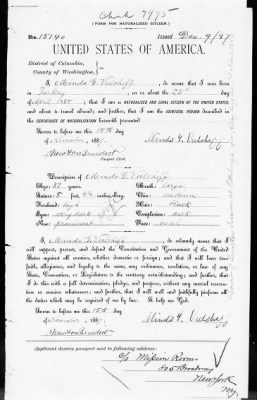 ( FORM FOR NATURALIZED CITIZEN. )
No. 15140 Issued Dec 9/87
UNITED STATES OF AMERICA.
District of Columbia,
County of Washington,
I, Mindo G. , do swear that I was born
in Turkey, on or about the 25th day
of April 1855; that I am a NATURALIZED AND LOYAL CITIZEN OF THE UNITED STATES,
and about to travel abroad; and further, that I am the IDENTICAL PERSON described
in the CERTIFICATE OF NATURALIZATION herewith presented.
Sworn to before me this 15th day
of November, 1887.
Description of Mindo G.
Age: 32 years Mouth: large
Stature: 5 feet, inches, Eng. Chin: medium
Forehead: high Hair: black
Eyes: very dark Complexion: dark
Nose: prominent Face: oval
I, Mindo G. , do solemnly swear that I
will support, protect, and defend the Constitution and Government of the United
States against all enemies, whether domestic or foreign; and that I will bear true
faith, allegiance, and loyalty to the same, any ordinance, resolution, or law of any
State, Convention, or Legislature to the contrary notwithstanding; and further, that
I do this with a full determination, pledge, and purpose, without any mental reservation
or evasion whatsoever; and further, that I will well and faithfully perform all
the duties which may be required of me by law. So help me God.
Sworn to before me this 15th
day of November, 1887.
Applicant desires passport sent to following address:
c/o Mission Rooms
805 Broadway
New York
N.Y.